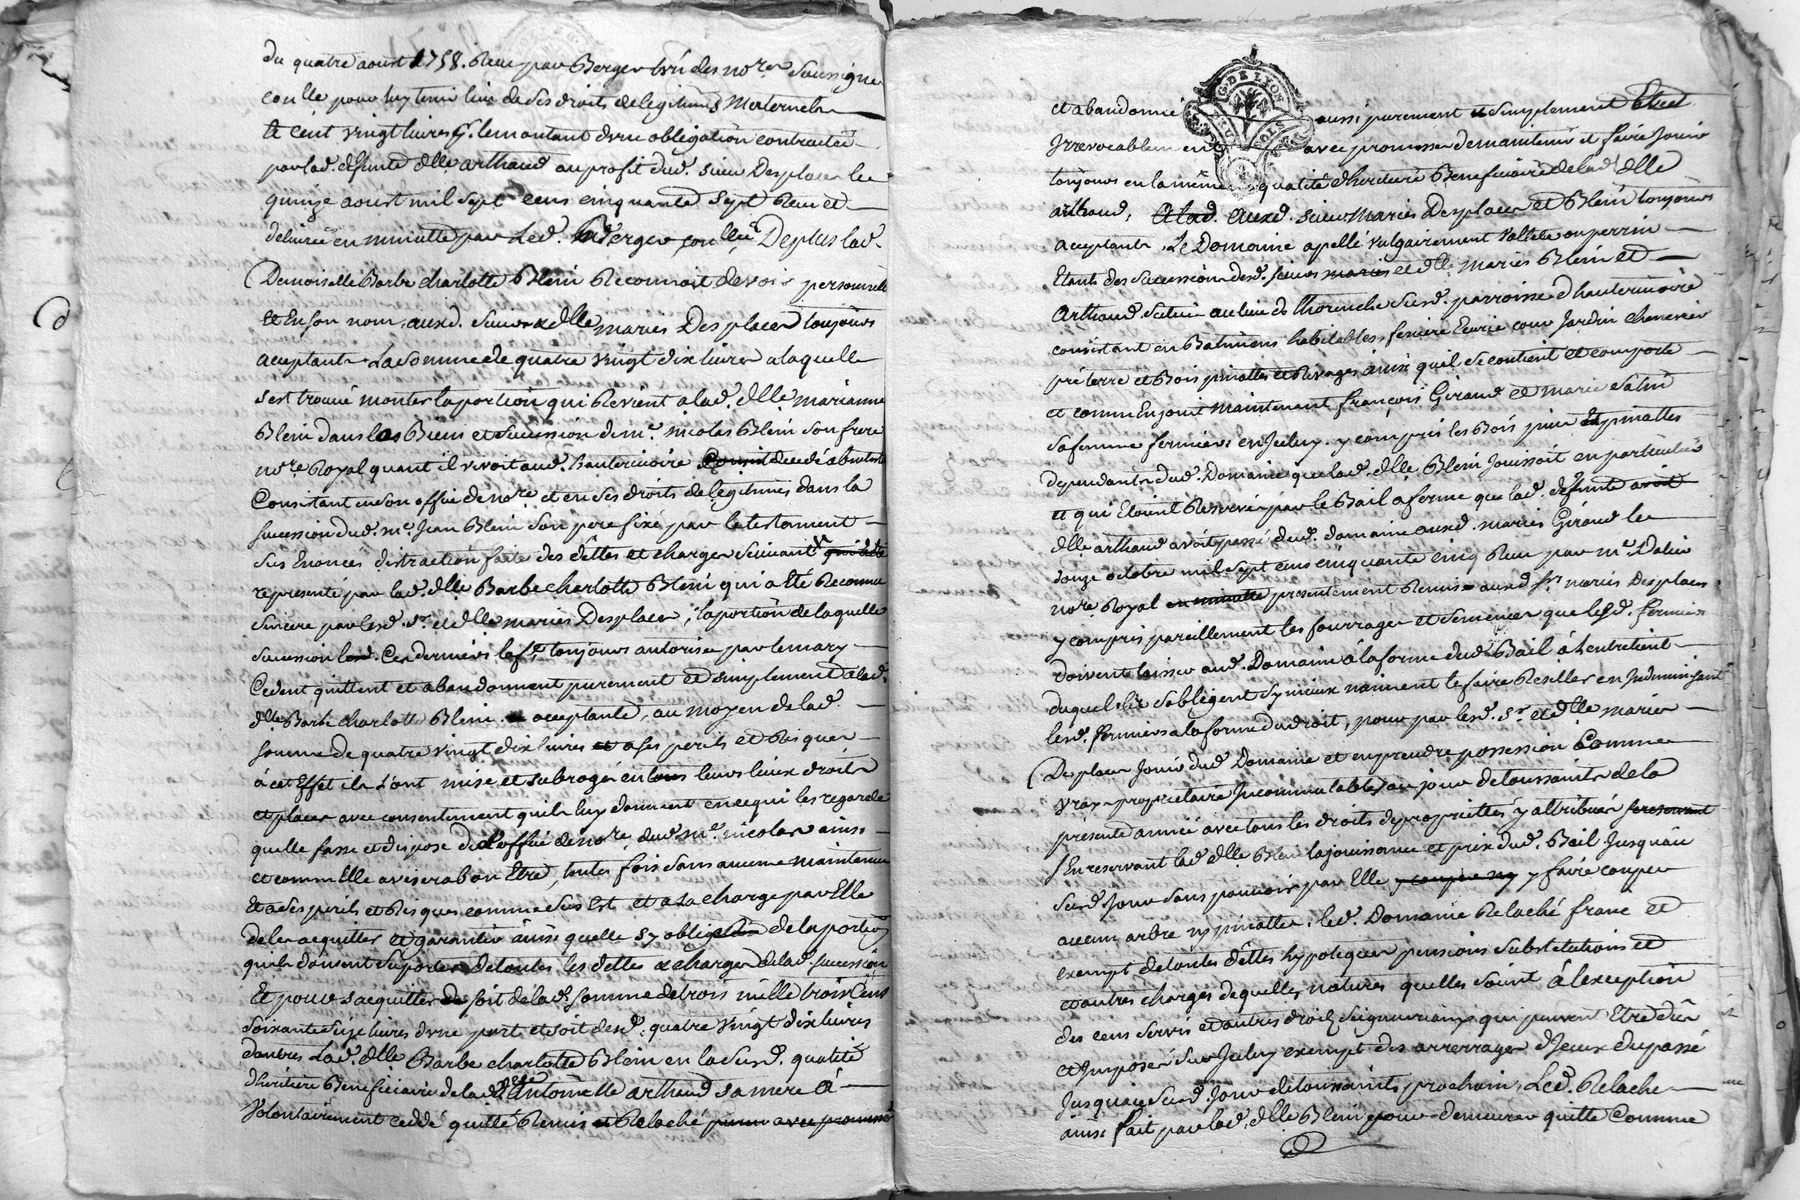 du quatre aoust 1758. Reçu par Berger des nores Soussigné
coulle pour luy tenir lieu de ses droits de legitimes Maternels
le cent vingt livres le montant d'une obligation contractée
par lad. defunte dlle arthaud au profit dud. sieur Desplaces le
quinze aoust mil sept cens cinquante sept Reçu et
delivrée en minutte par Led. Me Berger De plus lad.
Demoiselle Barbe charlotte Blein Reconnoit devoir personnelle
Et En son nom, auxd. Sieur & dlle mariés Desplaces toujours
acceptants La somme de quatre vingt dix livres a laquelle
s'est trouvé monter la portion qui Revient a lad. dlle marianne
Blein dans les Biens et succession de me. nicolas Blein son frere
nore Royal quant il vivoit aud. hauterivoire
Consistant en son office de nore et en ses droits de legitimes dans la
succession dud. me Jean Blein son pere fixé par le testament
sus Enoncés distraction faite des dettes et charges suivant
représenté par lad. dlle Barbe charlotte Blein qui a été Reconnu
sincere par lesd. sr. et dlle mariés Desplaces, la portion de laquelle
succession Ces derniers toujours autorisée par le mary
Cedent quittent et abandonnent purement et simplement a lad.
dlle Barbe charlotte Blein acceptante, au moyen de lad.
somme de quatre vingt dix livres et a ses perils et Risques
a cet Effet ils l'ont mise et subrogée en leurs lieux droits
et places avec consentement qu'ils luy donnent en ce qui les regarde
quelle fasse et dispose de l'office de nore. dud. me. nicolas ainsi
et comm Elle avisera bon Etre, toutes fois sans aucune maintenue
Et a ses perils et Risques comme sus Est et a la charge par Elle
de les acquitter et garantir ainsi quelle s'y oblige de la portion
qu'ils doivent suporter de toutes les dettes & charges de lad. succession
Et pour s'acquitter soit de lad. somme de trois mille trois Cens
soixante seize livres d'une part et soit desd. quatre vingt dix livres
d'autres Lad. dlle Barbe charlotte Blein en la susd. qualité
d'héritiere Beneficiaire de lad. dlle antoinette arthaud sa mere A
Volontairement Ceddé quitté Remis et Relaché purem avec promesse
et abandonne aussi purement et simplement
Irrevocablement avec promesse de maintenir et faire Jouir
toujours en la même qualité d'heritiere Beneficiaire de lad. dlle
arthaud, A lad. auxd. sieur Mariés Desplaces et Blein toujours
acceptants, Le Domaine apellé vulgairement ou perrin
Etant des succession desd. sieurs mariés et dlle mariés Blein et
Arthaud situé au lieu de susd. parroisse d'hauterivoire
consistant en Batimens habitables, feniere Ecurie cour Jardin cheneviere
pré terre et Bois pinattes et Rivages ainsi quil se contient et comporte
et comm En jouit maintenant françois Giraud et marie
sa femme fermiers en Jceluy. y compris les Bois pin Et pinattes
dependants dud. Domaine que lad. dlle Blein Jouissoit en particulier
et qui Etoient Reservés par le Bail a ferme que lad. defunte avoit
dlle arthaud avoit passé dud. domaine auxd. mariés Giraud le
onze octobre mil sept cens cinquante cinq Reçu par me.
nore Royal en minutte presentement Remis auxd srs mariés Desplaces
y compris pareillement les fourrages et semences que lesd. fermiers
doivent laisser aud. Domaine a la forme dud. Bail a l'entretient
duquel ils s'obligent sy mieux n'aiment le faire Resilier en Indemnisant
lesd. fermiers a la forme du droit, pour par lesd. sr. et dlle mariés
Desplaces Jouir dud. Domaine et en prendre possession Comme
vrays proprietaires Incommutables au jour de toussaints de la
présente année avec tous les droits de proprietes y attribués
En reservant lad. dlle Blein la jouissance et prix dud. Bail Jusqu'au
susd. Jour sans pouvoir par Elle y faire couper
aucun arbre ny pinattes, led. Domaine Relaché franc et
exempt de toutes dettes hypoteques pensions substitutions et
et autres charges de quelles natures quelles soient a l'exception
des cens servis et autres droits seigneuriaux qui peuvent Etre dûs
et Imposés sur Jceluy exempt des arrerrages d'Jceux du passé
Jusqu'au susd. Jour de toussaints prochain, Led. Relache
ainsi fait par lad. dlle Blein pour demeurer quitte Comme
G. DE LYON